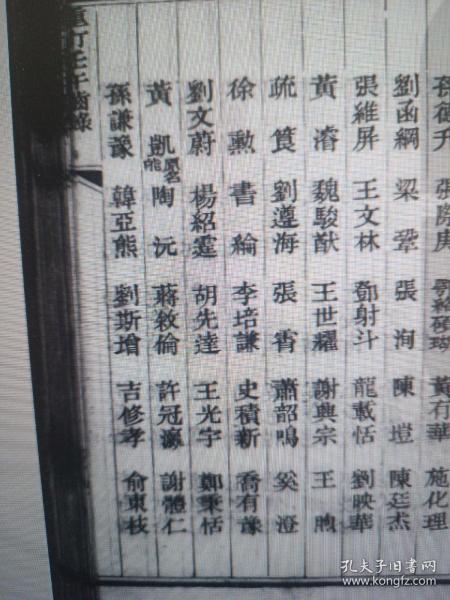 孫德升 張際庚 黃有華 施化理
劉函綱 梁鞏 張洵 陳塏 陳廷杰
張維屏 王文林 鄧射斗 龍載恬 劉映華
黃濬 魏駿猷 王世耀 謝興宗 王煦
疏筤 劉遵海 張霄 蕭韶鳴 奚澄
徐勳 書綸 李培謙 史積新 喬有豫
劉文蔚 楊紹霆 胡先達 王光宇 鄭秉恬
黃凱 陶沅 蔣敘倫 許冠瀛 謝體仁
孫謙豫 韓亞熊 劉斯增 吉修孝 俞東枝
壬午齒錄
孔夫子旧书网
www.kongfz.com